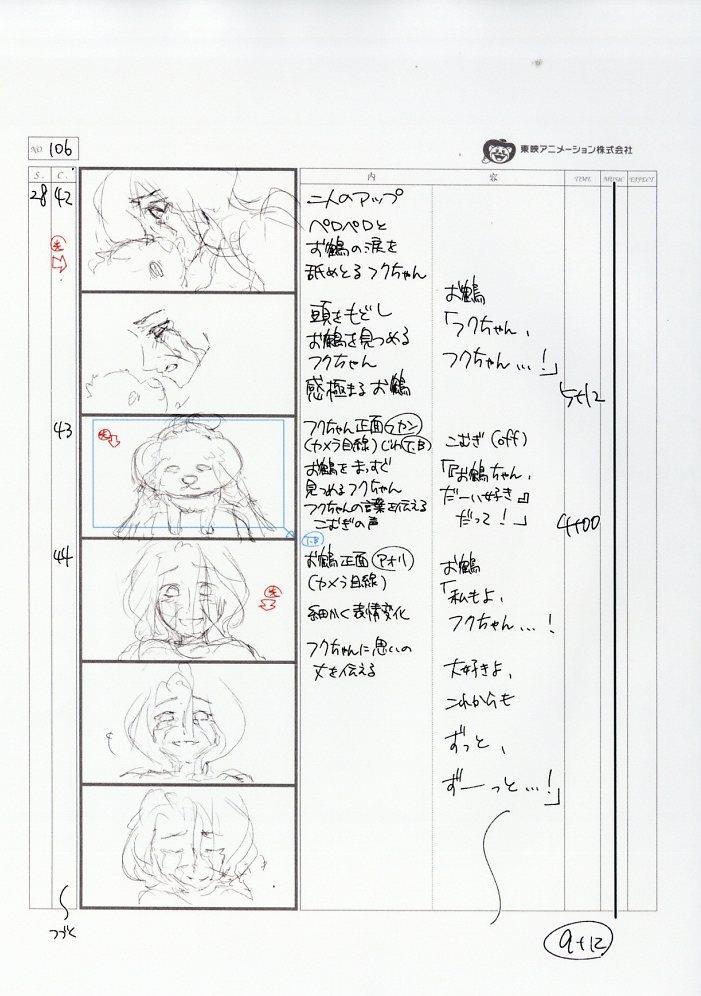 NO. 106
東映アニメーション株式会社
S. C. 内 容 TIME MUSIC EFFECT
28 42
二人のアップ
ペロペロと
お鶴の涙を
舐めとるフクちゃん
お鶴
「フクちゃん、
フクちゃん…!」
頭をもどし
お鶴を見つめる
フクちゃん
感極まるお鶴
5+12
43
フクちゃん正面 フカン
(カメラ目線) じわT.B
お鶴をまっすぐ
見つめるフクちゃん
フクちゃんの言葉を伝える
こむぎの声
こむぎ(off)
「『お鶴ちゃん、
だーい好き』
だって!」
4+00
T.B
44
お鶴正面 アオリ
(カメラ目線)
細かく表情変化
フクちゃんに思いの
丈を伝える
お鶴
「私もよ、
フクちゃん…!
大好きよ、
これからも
ずっと、
ずーっと…!」
つづく
9+12